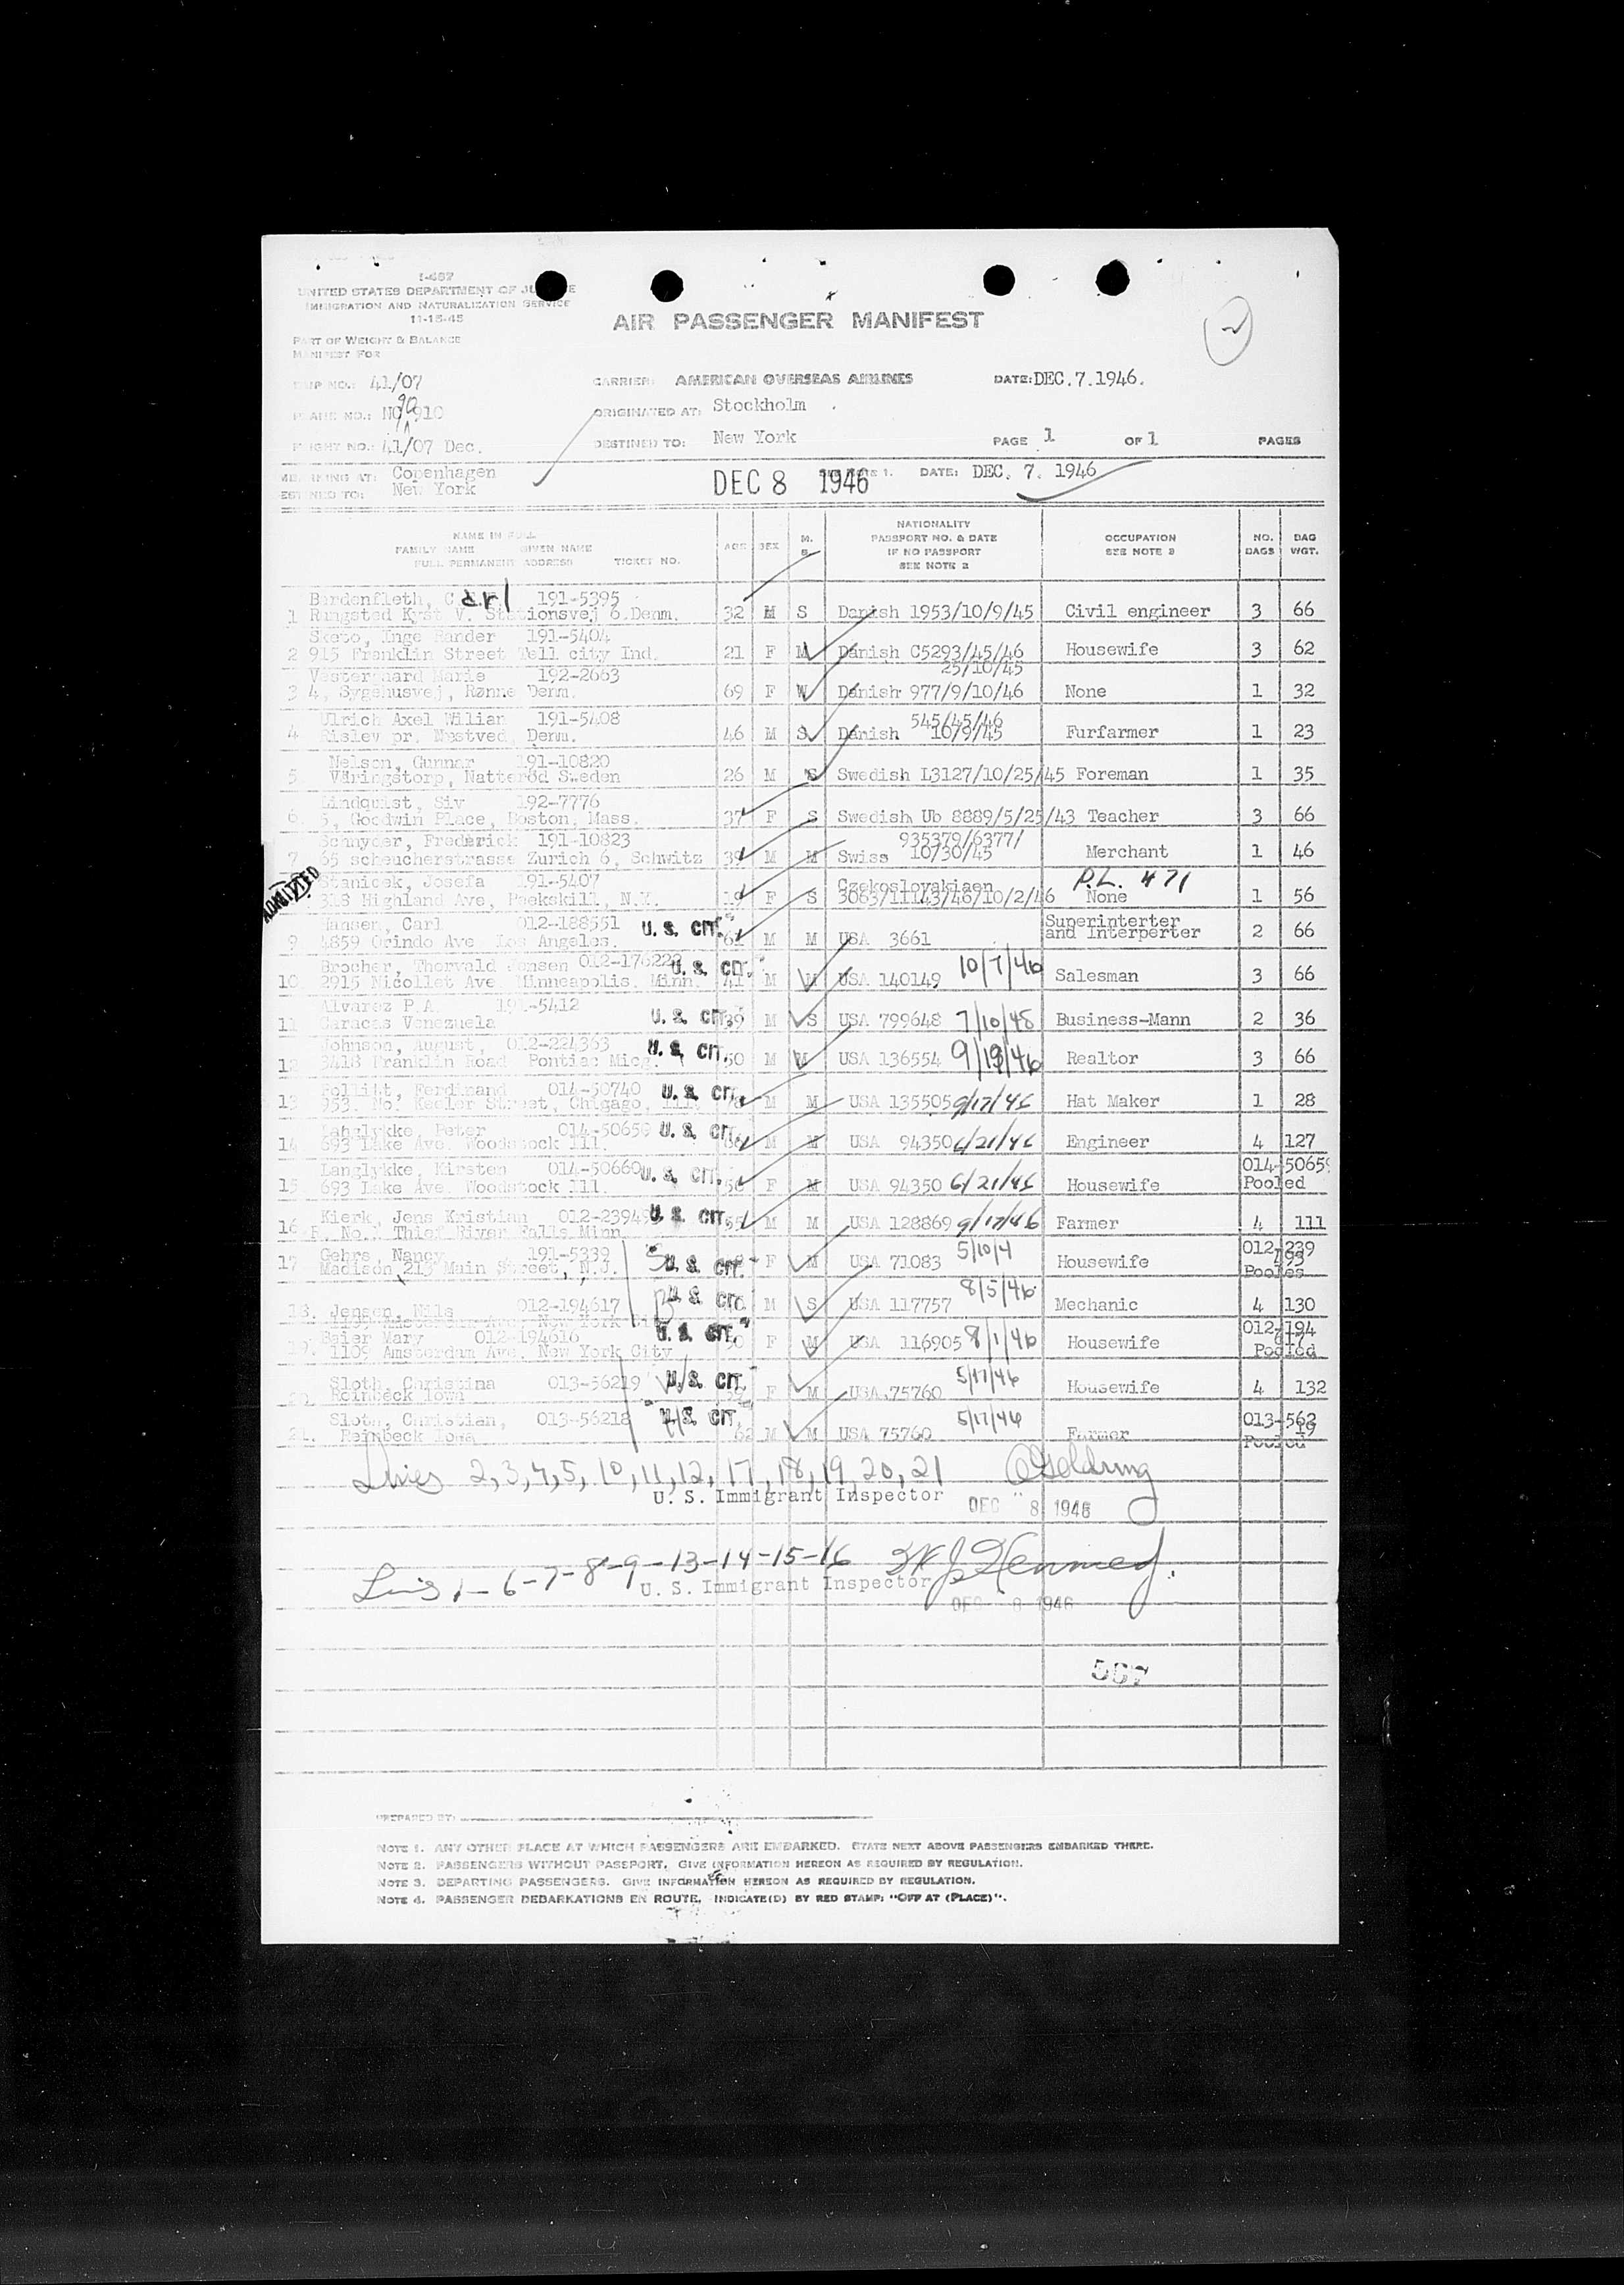 I-487
UNITED STATES DEPARTMENT OF JU E
IMMIGRATION AND NATURALIZATION SERVICE
11-15-45
AIR PASSENGER MANIFEST
2
PART OF WEIGHT & BALANCE
MANIFEST FOR
TRIP NO.: 41/07 CARRIER: AMERICAN OVERSEAS AIRLINES DATE: DEC.7.1946.
90
PLANE NO.: NC 910 ORIGINATED AT: Stockholm .
FLIGHT NO.: 41/07 Dec. DESTINED TO: New York PAGE 1 OF 1 PAGES
EMBARKING AT: Copenhagen DEC 8 1946 SEE NOTE 1. DATE: DEC. 7. 1946
DESTINED TO: New York
NAME IN FULL
FAMILY NAME GIVEN NAME
FULL PERMANENT ADDRESS TICKET NO. AGE SEX M. S. NATIONALITY PASSPORT NO. & DATE IF NO PASSPORT SEE NOTE 2 OCCUPATION SEE NOTE 3 NO. BAGS BAG WGT.
Bardenfleth, C arl 191-5395
1 Rungsted Kyst V. Stationsvej 6.Denm. 32 M S Danish 1953/10/9/45 Civil engineer 3 66
Sketo, Inge Rander 191-5404
2 915 Franklin Street Tell city Ind. 21 F M Danish C5293/45/46 Housewife 3 62
25/10/45
Vestergaard Marie 192-2663
3 4, Sygehusvej, Rønne Denm. 69 F W Danish 977/9/10/46 None 1 32
Ulrich Axel Wilian 191-5408 545/45/46
4 Rislev pr. Nestved, Denm. 46 M S Danish 10/9/45 Furfarmer 1 23
Nelson, Gunnar 191-10820
5. Väringstorp, Natteröd Sweden 26 M S Swedish L3127/10/25/45 Foreman 1 35
Lindquist, Siv 192-7776
6. 5, Goodwin Place, Boston, Mass. 37 F S Swedish Ub 8889/5/25/43 Teacher 3 66
Schnyder, Frederick 191-10823 935379/6377/
7 65 scheucherstrasse Zurich 6, Schwitz 39 M M Swiss 10/30/45 Merchant 1 46
ADMITTED
Stanicek, Josefa 191-5407 Czekoslovakiaen P.L. 471
318 Highland Ave, Peekskill, N.Y. 19 F S 3063/11143/46/10/2/46 None 1 56
Hansen, Carl 012-188551 U. S. CIT. Superinterter
9 4859 Orindo Ave Los Angeles. 61 M M USA 3661 and Interperter 2 66
Brocher, Thorvald Jensen 012-176222 U. S. CIT.
10 2915 Nicollet Ave. Minneapolis. Minn. 41 M M USA 140149 10/7/46 Salesman 3 66
Alvarez P.A. 191-5412
11 Caracas Venezuela U. S. CIT. 39 M S USA 799648 7/10/45 Business-Mann 2 36
Johnson, August, 012-224363 U. S. CIT.
12 3418 Franklin Road Pontiac Micg. 50 M M USA 136554 9/19/46 Realtor 3 66
Pollitt, Ferdinand 014-50740 U. S. CIT.
13 953 No. Keeler Street, Chigago, Ill. M M USA 135505 9/17/46 Hat Maker 1 28
Langlykke, Peter 014-50659 U. S. CIT.
14 693 Lake Ave. Woodstock Ill. M M USA 94350 6/21/46 Engineer 4 127
Langlykke, Kirsten 014-50660 U. S. CIT. 014-50659
15 693 Lake Ave. Woodstock Ill. 56 F M USA 94350 6/21/46 Housewife Pooled
Kierk, Jens Kristian 012-239493 U. S. CIT.
16 R. No.. Thief River Falls Minn. 55 M M USA 128869 9/17/46 Farmer 4 111
Gehrs, Nancy 191-5339 U. S. CIT. 5/10/4 012-239
17 Madison 215 Main Street, N.J. F M USA 71083 Housewife 493 Pooles
U. S. CIT. 8/5/46
18. Jensen, Nils 012-194617 M S USA 117757 Mechanic 4 130
1109 Amsterdam Ave, New York City
Baier Mary 012-194616 U. S. CIT. 012-194
19. 1109 Amsterdam Ave. New York City 50 F M USA 116905 8/1/46 Housewife 617 Pooled
Sloth, Christina 013-56219 U. S. CIT. 5/17/46
20. Reinbeck Iowa 59 F M USA.75760 Housewife 4 132
Sloth, Christian, 013-56218 U. S. CIT. 5/17/46 013-562
21. Reinbeck Iowa 62 M M USA 75760 Farmer 19 Pooled
Lines 2,3,4,5, 10,11,12, 17,18,19,20,21 Goldring
U. S. Immigrant Inspector DEC 8 1946
Lines 1-6-7-8-9-13-14-15-16
U. S. Immigrant Inspector
DEC 8 1946
PREPARED BY:
NOTE 1. ANY OTHER PLACE AT WHICH PASSENGERS ARE EMBARKED. STATE NEXT ABOVE PASSENGERS EMBARKED THERE.
NOTE 2. PASSENGERS WITHOUT PASSPORT, GIVE INFORMATION HEREON AS REQUIRED BY REGULATION.
NOTE 3. DEPARTING PASSENGERS. GIVE INFORMATION HEREON AS REQUIRED BY REGULATION.
NOTE 4. PASSENGER DEBARKATIONS EN ROUTE, INDICATE(D) BY RED STAMP: "OFF AT (PLACE)".